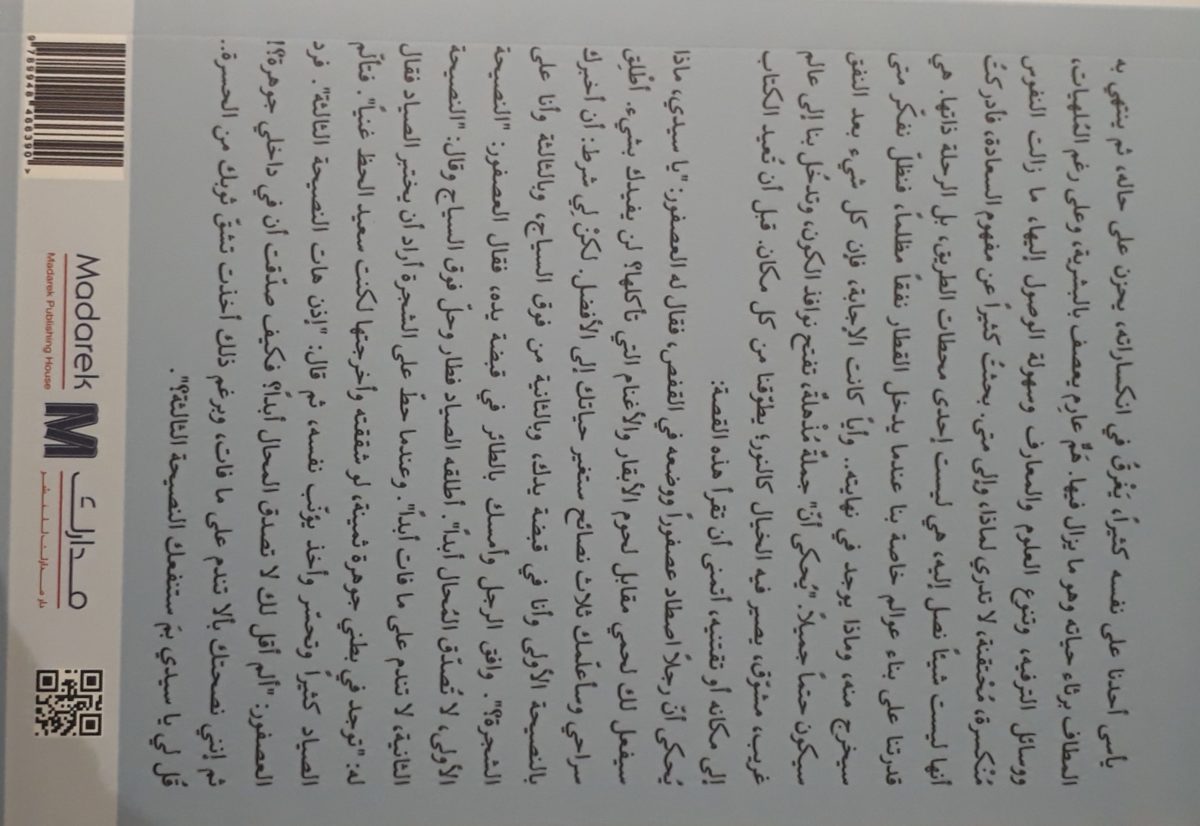 يأسى أحدنا على نفسه كثيراً، يَغْرقُ في انكساراته، يحزن على حاله، ثم ينتهي به
المطاف برثاء حياته وهو ما يزال فيها. هَمٌّ عارِم يعصف بالبشرية، وعلى رغم المُلهيات،
ووسائل الترفيه، وتنوع العلوم والمعارف وسهولة الوصول إليها، ما زالت النفوس
مُنْكسرة، مُحْتقنة، لا تدري لماذا، وإلى متى. بحثتُ كثيراً عن مفهوم السعادة، فأدركتُ
أنها ليست شيئاً نصل إليه، هي ليست إحدى محطات الطريق، بل الرحلة ذاتها. هي
قدرتنا على بناء عوالم خاصة بنا عندما يدخل القطار نفقاً مظلماً، فنظلّ نفكّر متى
سيخرج منه، وماذا يوجد في نهايته.. وأياً كانت الإجابة، فإن كل شيء بعد النفق
سيكون حتماً جميلاً. "يُحكى أنّ" جملةٌ مُذْهلةٌ، تفتح نوافذ الكون، وتدخُل بنا إلى عالم
غريب، مشوّق، يصير فيه الخيال كالنور؛ يطوّقنا من كل مكان. قبل أن تُعيد الكتاب
إلى مكانه أو تقتنيه، أتمنى أن تقرأ هذه القصة:
يُحكى أنّ رجلاً اصطاد عصفوراً ووضعه في القفص، فقال له العصفور: "يا سيدي، ماذا
سيفعل لك لحمي مقابل لحوم الأبقار والأغنام التي تأكلها؟ لن يفيدك بشيء. أطْلق
سراحي وسأعلّمك ثلاث نصائح ستغير حياتك إلى الأفضل. لكنْ لي شرط: أن أخبرك
بالنصيحة الأولى وأنا في قبضة يدك، وبالثانية من فوق السياج، وبالثالثة وأنا على
الشجرة؟". وافق الرجل وأمسك بالطائر في قبضة يده، فقال العصفور: "النصيحة
الأولى، لا تُصدّق المُحال أبداً". أطلقه الصياد فطار وحلّ فوق السياج وقال: "النصيحة
الثانية، لا تندم على ما فات أبداً". وعندما حطّ على الشجرة أراد أن يختبر الصياد فقال
له: "توجد في بطني جوهرة ثمينة، لو شققته وأخرجتها لكنت سعيد الحظ غنياً". فتألّم
الصياد كثيراً وتحسّر وأخذ يؤنّب نفسه، ثم قال: "إذن هات النصيحة الثالثة". فرد
العصفور: "ألم أقل لك لا تصدق المحال أبداً؟ فكيف صدّقت أن في داخلي جوهرة؟!
ثم إنني نصحتك بألا تندم على ما فات، وبرغم ذلك أخذت تشقّ ثوبك من الحسرة..
قُل لي يا سيدي بِمَ ستنفعك النصيحة الثالثة؟".
9 789948 466390 >
Madarek
Madarek Publishing House
M
مدارك
دار مدارك للنشر